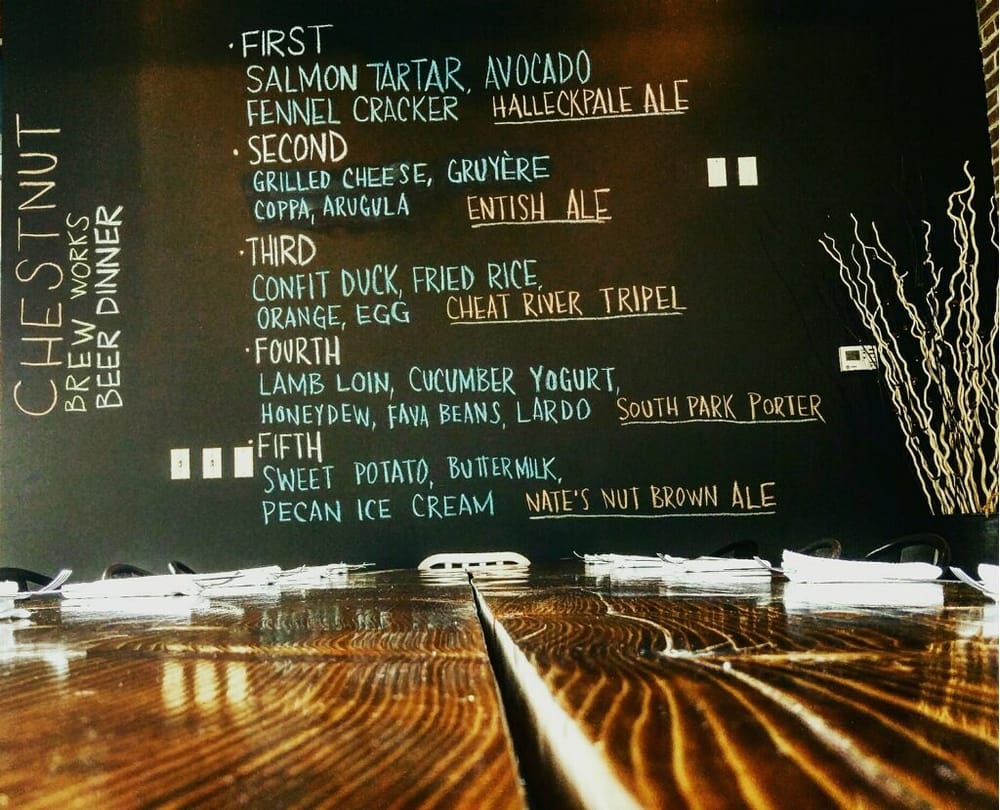 CHESTNUT
BREW WORKS
BEER DINNER
·FIRST
SALMON TARTAR, AVOCADO
FENNEL CRACKER HALLECKPALE ALE
·SECOND
GRILLED CHEESE, GRUYÈRE
COPPA, ARUGULA ENTISH ALE
·THIRD
CONFIT DUCK, FRIED RICE,
ORANGE, EGG CHEAT RIVER TRIPEL
·FOURTH
LAMB LOIN, CUCUMBER YOGURT,
HONEYDEW, FAVA BEANS, LARDO SOUTH PARK PORTER
·FIFTH
SWEET POTATO, BUTTERMILK,
PECAN ICE CREAM NATE'S NUT BROWN ALE